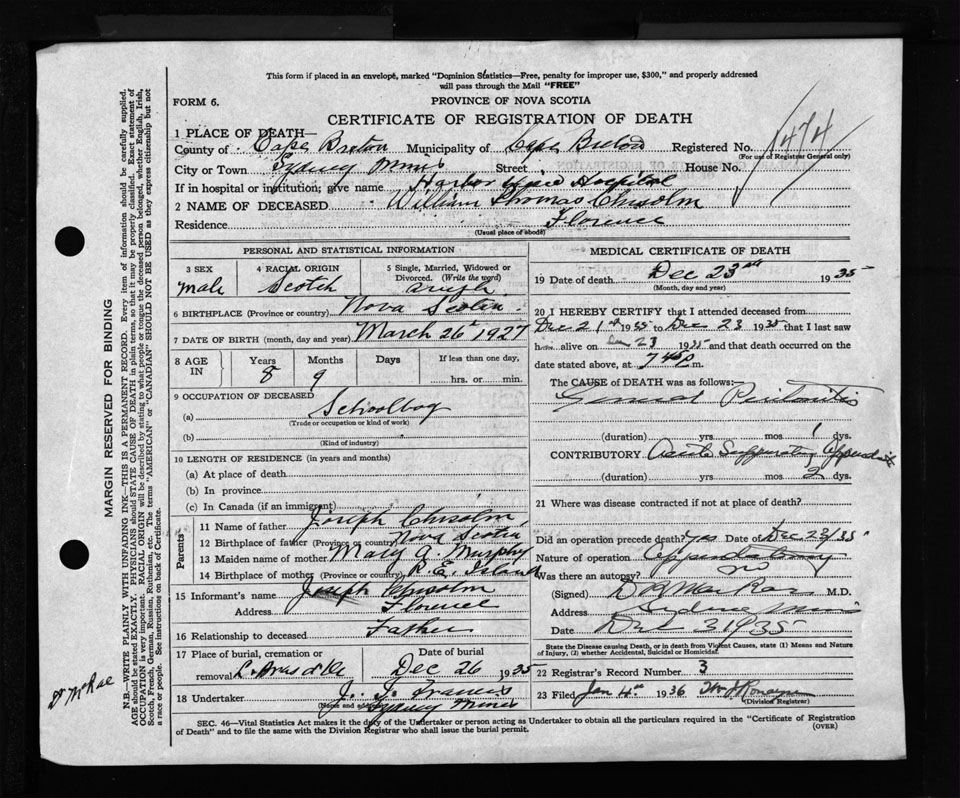 This form if placed in an envelope, marked "Dominion Statistics—Free, penalty for improper use, $300," and properly addressed
will pass through the Mail "FREE"
FORM 6.
PROVINCE OF NOVA SCOTIA
CERTIFICATE OF REGISTRATION OF DEATH
1 PLACE OF DEATH—
County of Cape Breton Municipality of Cape Breton Registered No. 474
(For use of Registrar General only)
City or Town Sydney Mines Street House No.
If in hospital or institution; give name Harbor View Hospital
2 NAME OF DECEASED William Thomas Chisolm
Residence Florence
(Usual place of abode)
PERSONAL AND STATISTICAL INFORMATION
3 SEX
male
4 RACIAL ORIGIN
Scotch
5 Single, Married, Widowed or
Divorced. (Write the word)
single
6 BIRTHPLACE (Province or country) Nova Scotia
7 DATE OF BIRTH (month, day and year) March 26 1927
8 AGE IN
Years Months Days If less than one day,
8 9 hrs. or min.
9 OCCUPATION OF DECEASED
(a) Schoolboy
(Trade or occupation or kind of work)
(b)
(Kind of industry)
10 LENGTH OF RESIDENCE (in years and months)
(a) At place of death
(b) In province
(c) In Canada (if an immigrant)
Parents
11 Name of father Joseph Chisolm
12 Birthplace of father (Province or country) Nova Scotia
13 Maiden name of mother Mary A. Murphy
14 Birthplace of mother (Province or country) P. E. Island
15 Informant's name Joseph Chisolm
Address Florence
16 Relationship to deceased Father
17 Place of burial, cremation or
removal
Date of burial
Dec 26 1935
18 Undertaker J. J. Francis
(Name and address) Sydney Mines
MEDICAL CERTIFICATE OF DEATH
19 Date of Death Dec 23rd 1935
(Month, day and year)
20 I HEREBY CERTIFY that I attended deceased from
Dec 21st 1935 to Dec 23 1935 that I last saw
him alive on Dec 23 1935 and that death occurred on the
date stated above, at 7 45 P. m.
The CAUSE of DEATH was as follows:—
General Peritonitis
(duration) yrs mos 1 dys.
CONTRIBUTORY Acute Suppurating Appendicitis
(duration) yrs mos 2 dys.
21 Where was disease contracted if not at place of death?
Did an operation precede death? yes Date of Dec 23/35
Nature of operation Appendectomy
Was there an autopsy? no
(Signed) D R MacRae M.D.
Address Sydney Mines
Date Dec 31 1935
State the Disease causing Death, or in death from Violent Causes, state (1) Means and Nature
of Injury, (2) whether Accidental, Suicidal or Homicidal.
22 Registrar's Record Number 3
23 Filed Jan 4th 1936
(Division Registrar)
SEC. 46—Vital Statistics Act makes it the duty of the Undertaker or person acting as Undertaker to obtain all the particulars required in the "Certificate of Registration
of Death" and to file the same with the Division Registrar who shall issue the burial permit.
(OVER)
MARGIN RESERVED FOR BINDING
N.B.—WRITE PLAINLY WITH UNFADING INK—THIS IS A PERMANENT RECORD. Every item of information should be carefully supplied.
AGE should be stated EXACTLY. PHYSICIANS should STATE CAUSE OF DEATH in plain terms, so that it may be properly classified. Exact statement of
OCCUPATION is very important. RACIAL ORIGIN will be described by stating to what people or tongue the deceased person belonged, whether English, Irish,
Scotch, French, German, Russian, Ruthenian, etc. The terms "AMERICAN" or "CANADIAN" SHOULD NOT BE USED as they express citizenship but not
a race or people. See instructions on back of Certificate.
Dr McRae